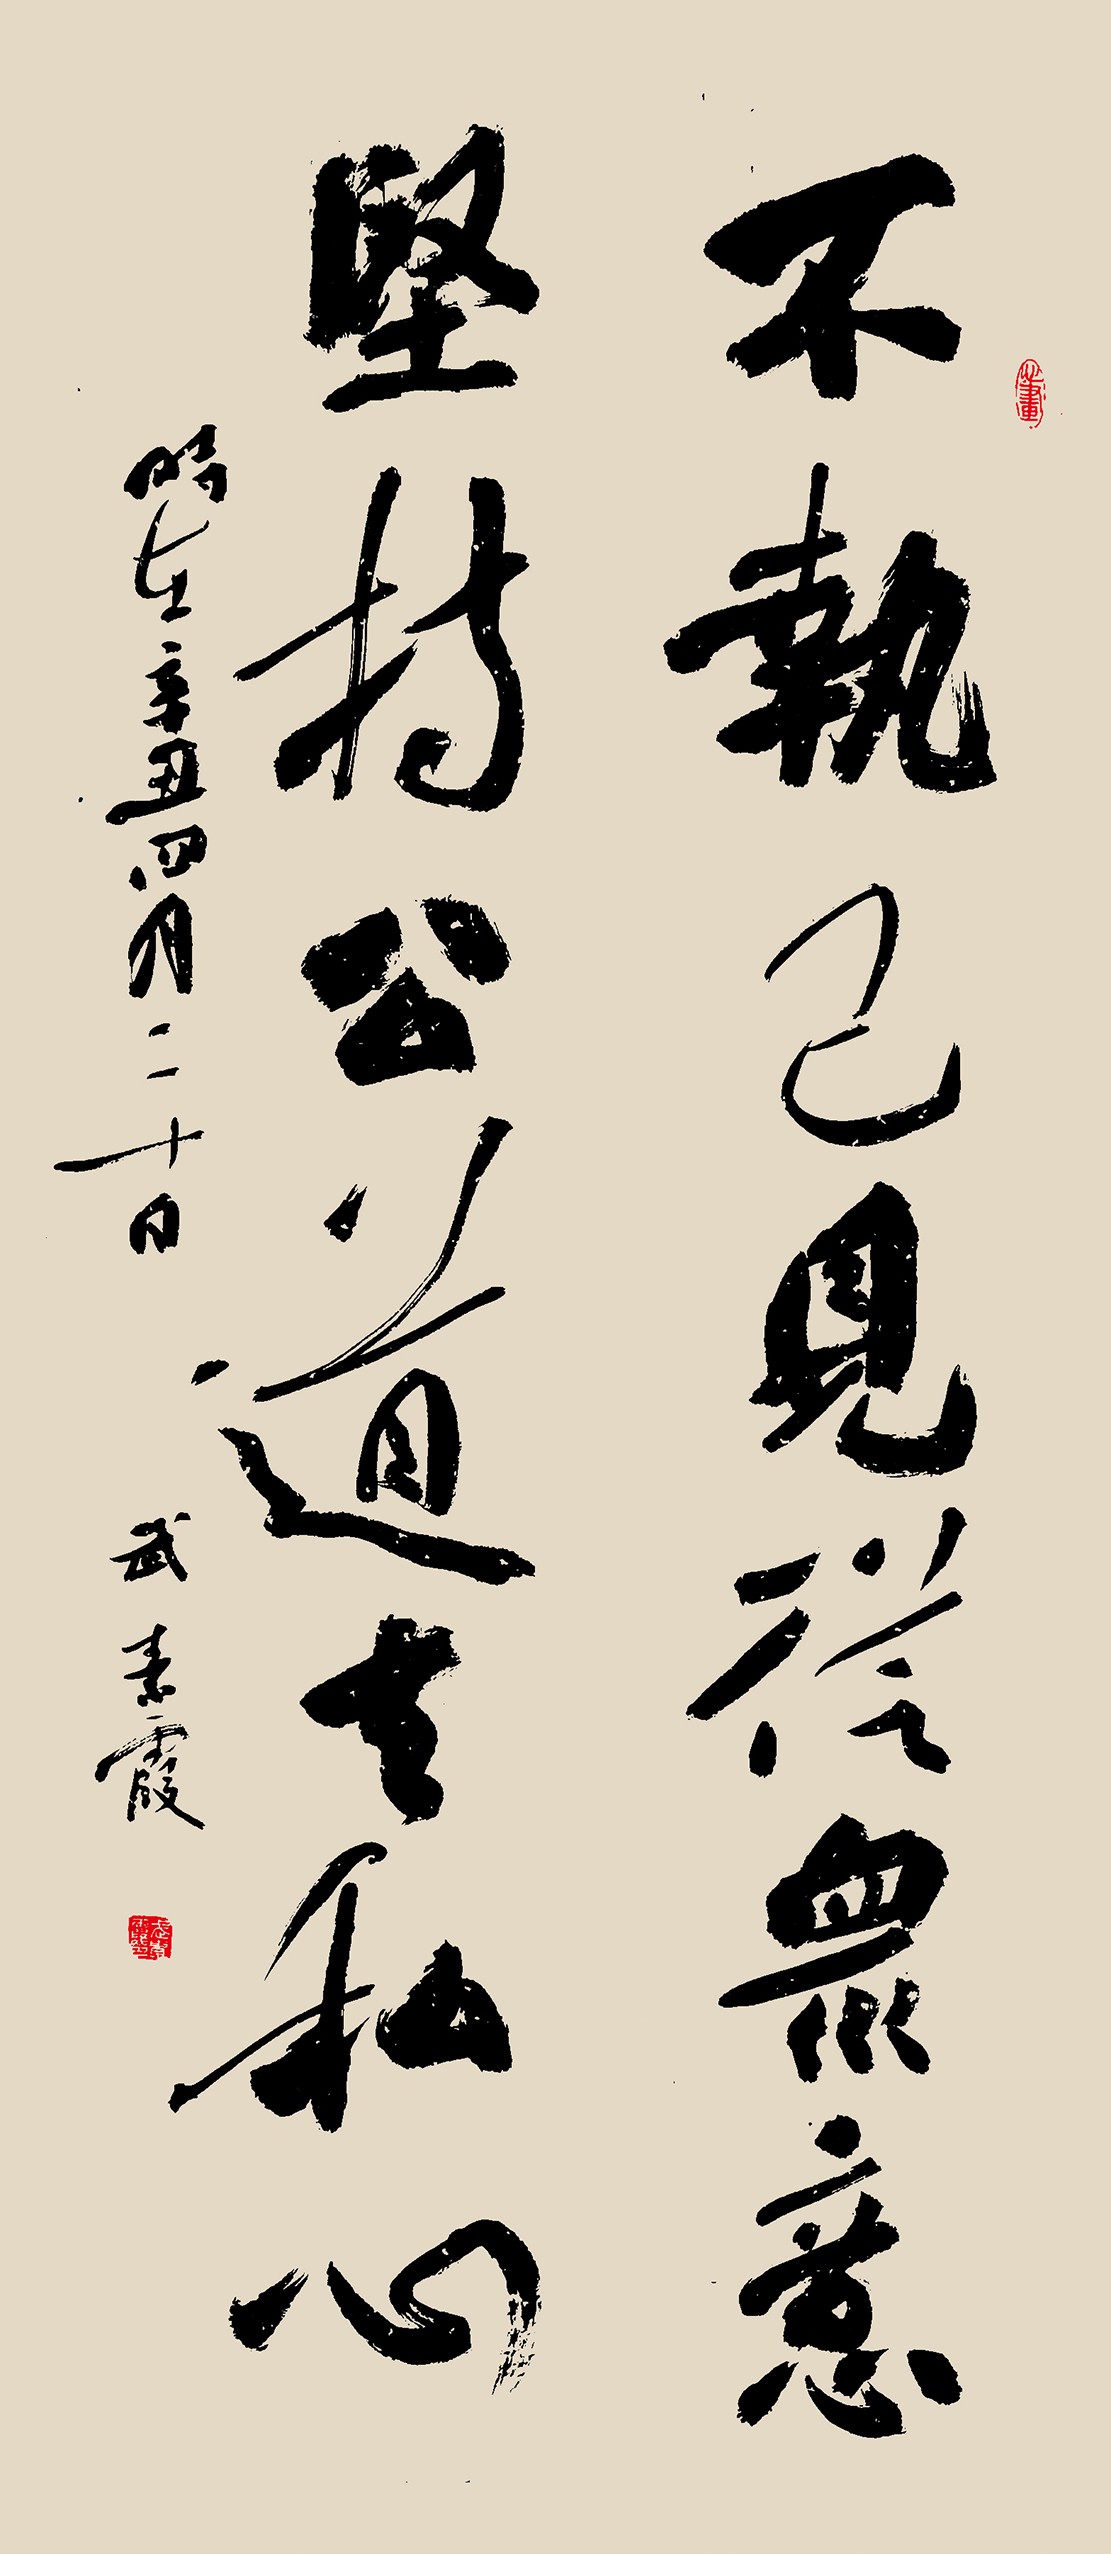 不執己見從眾意
堅持公道去私心
時在辛丑四月二十日 武素霞